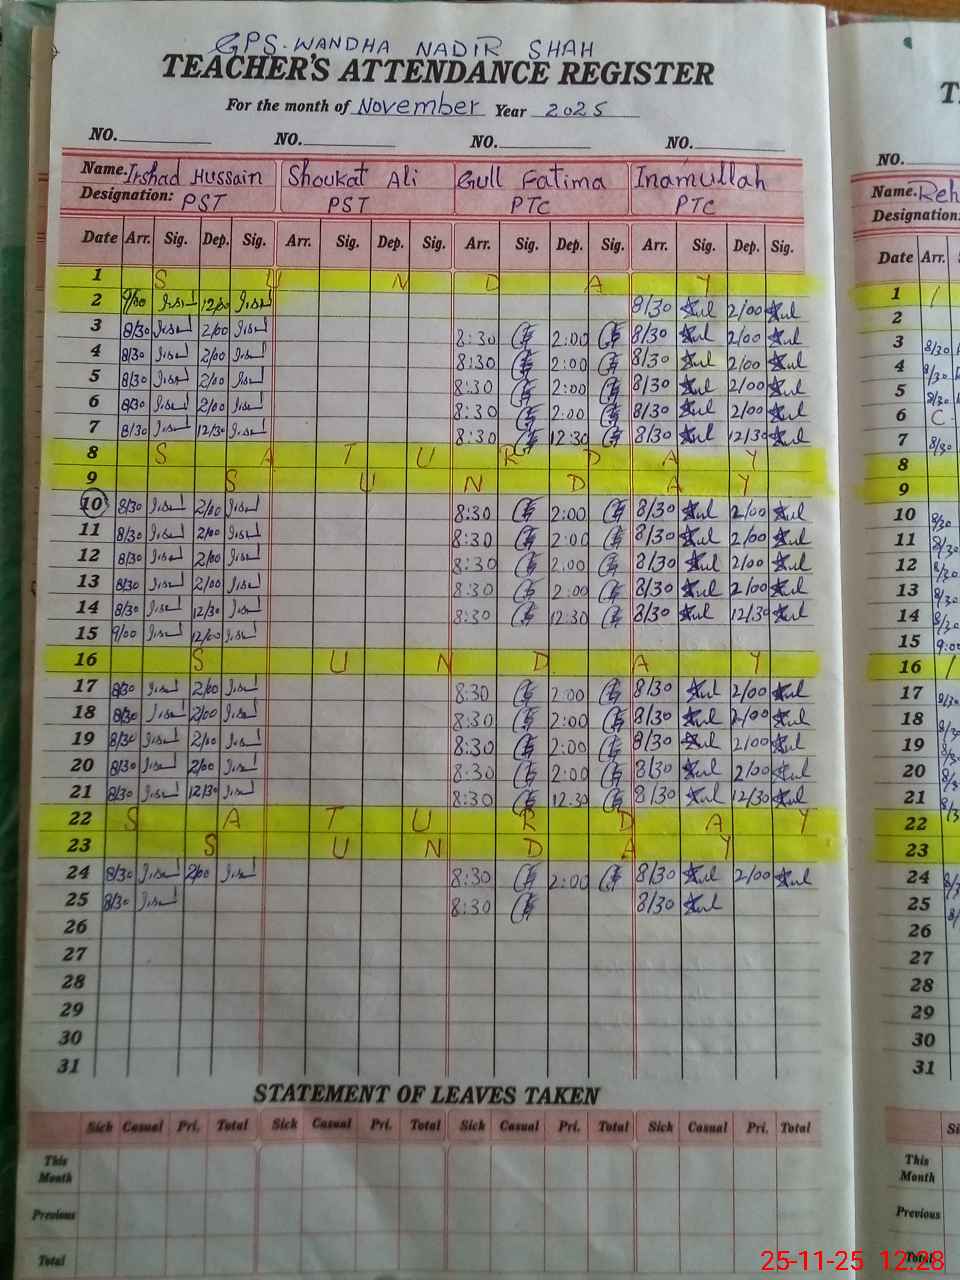 GPS. WANDHA NADIR SHAH
TEACHER'S ATTENDANCE REGISTER
For the month of November Year 2025
NO. NO. NO. NO.
Name. Irshad Hussain Shoukat Ali Gull Fatima Inamullah
Designation: PST PST PTC PTC
Date Arr. Sig. Dep. Sig. Arr. Sig. Dep. Sig. Arr. Sig. Dep. Sig. Arr. Sig. Dep. Sig.
1 S U N D A Y
2 9/00 12/00 8/30 2/00
3 8/30 2/00 8:30 2:00 8/30 2/00
4 8/30 2/00 8:30 2:00 8/30 2/00
5 8/30 2/00 8:30 2:00 8/30 2/00
6 8/30 2/00 8:30 2:00 8/30 2/00
7 8/30 12/30 8:30 12:30 8/30 12/30
8 S A T U R D A Y
9 S U N D A Y
10 8/30 2/00 8:30 2:00 8/30 2/00
11 8/30 2/00 8:30 2:00 8/30 2/00
12 8/30 2/00 8:30 2:00 8/30 2/00
13 8/30 2/00 8:30 2:00 8/30 2/00
14 8/30 12/30 8:30 12:30 8/30 12/30
15 9/00 12/00
16 S U N D A Y
17 8/30 2/00 8:30 2:00 8/30 2/00
18 8/30 2/00 8:30 2:00 8/30 2/00
19 8/30 2/00 8:30 2:00 8/30 2/00
20 8/30 2/00 8:30 2:00 8/30 2/00
21 8/30 12/30 8:30 12:30 8/30 12/30
22 S A T U R D A Y
23 S U N D A Y
24 8/30 2/00 8:30 2:00 8/30 2/00
25 8/30 8:30 8/30
26
27
28
29
30
31
STATEMENT OF LEAVES TAKEN
Sick Casual Pri. Total Sick Casual Pri. Total Sick Casual Pri. Total Sick Casual Pri. Total
This Month
Previous
Total
NO.
Name. Reh
Designation:
Date Arr.
1
2
3 8/30
4 8/30
5 8/30
6 C
7 8/30
8
9
10 8/30
11 8/30
12 8/30
13 8/30
14 8/30
15 9:00
16
17 8/30
18 8/30
19 8/30
20 8/30
21 8/30
22
23
24 8/30
25
26
27
28
29
30
31
This Month
Previous
Total
25-11-25 12:28